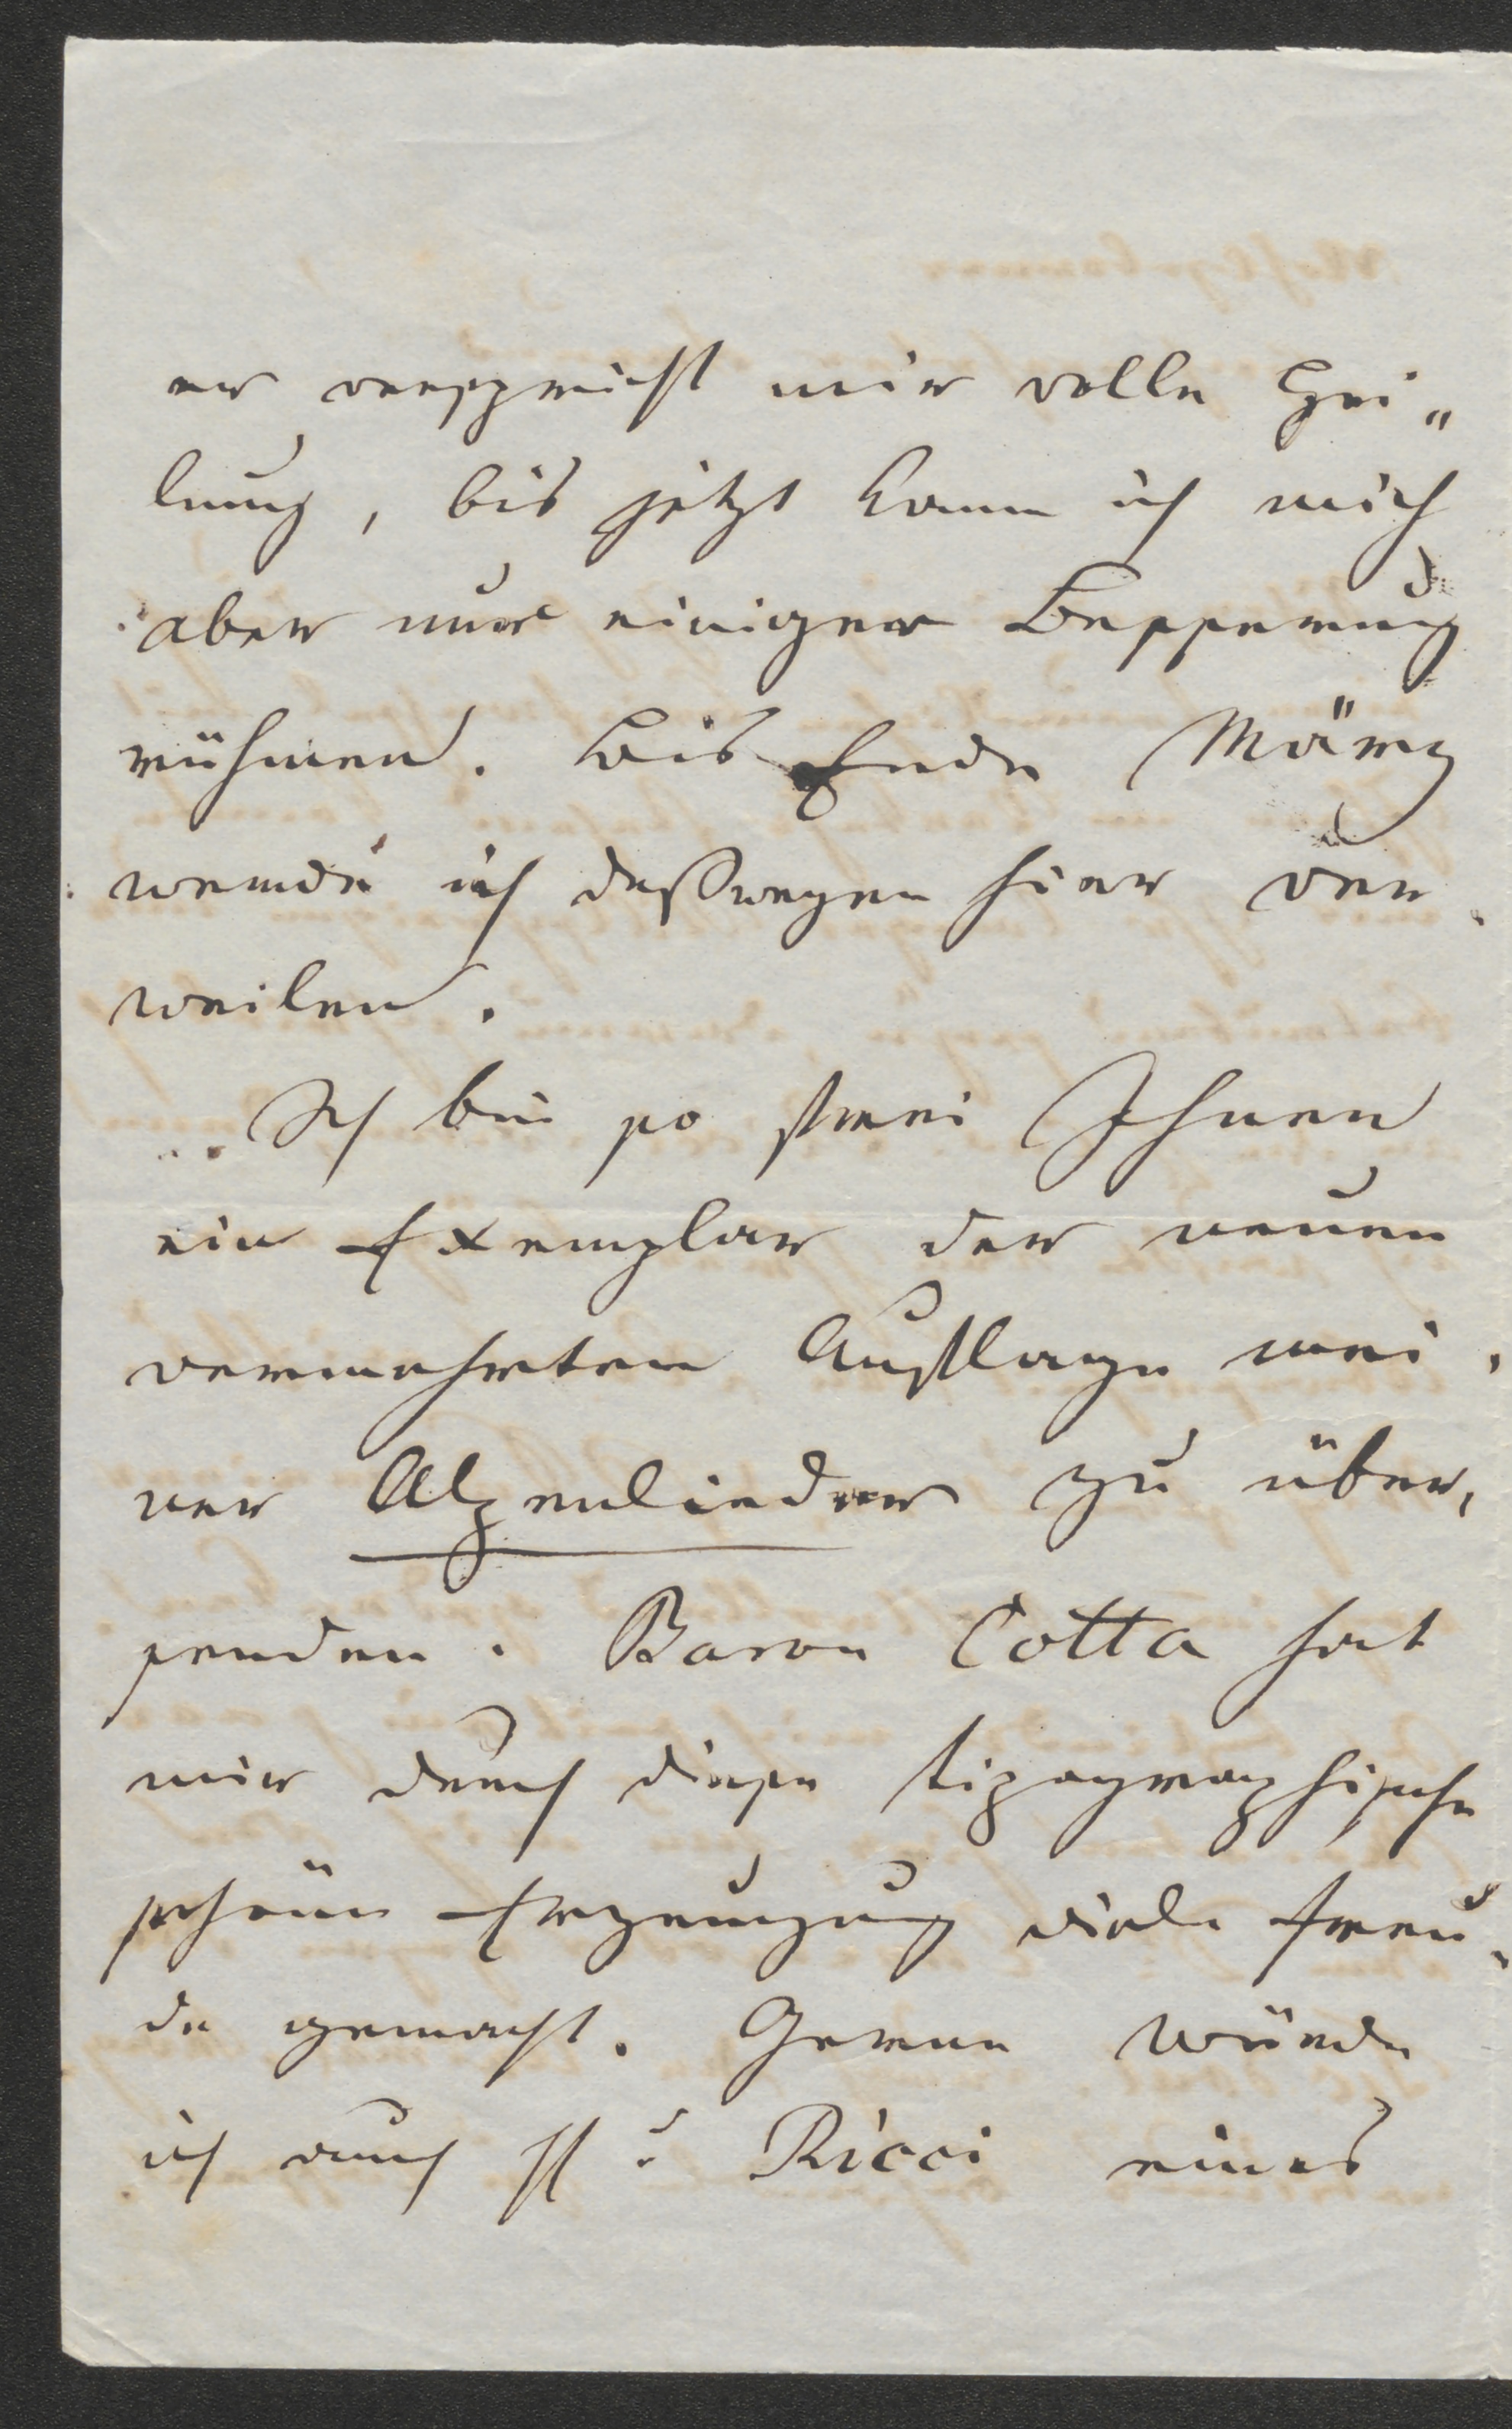 er verspricht mir volle Hei„
lung, bis jetzt kann ich mich
aber nur einiger Besserung
rühmen. Bis Ende März
werde ich deßwegen hier ver-
weilen.
Ich bin so frei Ihnen
ein Exemplar der neuen
vermehrten Auflage mei-
ner Alpenlieder zu über-
senden. Baron Cotta hat
mir durch diese tipographische
schöne Erzeugung viele Freu-
de gemacht. Gerne würde
ich auch H: Ricci eines